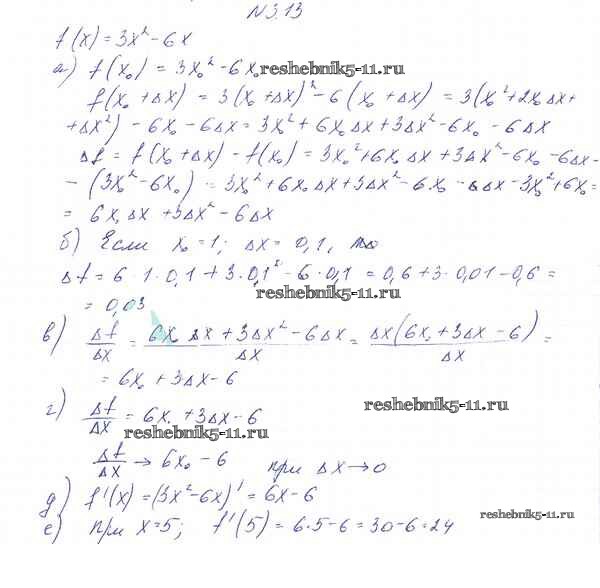 N3.13
f(x) = 3x² - 6x
а) f(x₀) = 3x₀² - 6x₀
reshebnik5-11.ru
f(x₀ + Δx) = 3(x₀ + Δx)² - 6(x₀ + Δx) = 3(x₀² + 2x₀Δx +
+ Δx²) - 6x₀ - 6Δx = 3x₀² + 6x₀Δx + 3Δx² - 6x₀ - 6Δx
Δf = f(x₀ + Δx) - f(x₀) = 3x₀² + 6x₀Δx + 3Δx² - 6x₀ - 6Δx -
- (3x₀² - 6x₀) = 3x₀² + 6x₀Δx + 3Δx² - 6x₀ - 6Δx - 3x₀² + 6x₀ =
= 6x₀Δx + 3Δx² - 6Δx
б) Если x₀ = 1; Δx = 0,1, то
Δf = 6 · 1 · 0,1 + 3 · 0,1² - 6 · 0,1 = 0,6 + 3 · 0,01 - 0,6 =
= 0,03
reshebnik5-11.ru
в) Δf/Δx = (6x₀Δx + 3Δx² - 6Δx)/Δx = Δx(6x₀ + 3Δx - 6)/Δx =
= 6x₀ + 3Δx - 6
г) Δf/Δx = 6x₀ + 3Δx - 6
reshebnik5-11.ru
reshebnik5-11.ru
Δf/Δx → 6x₀ - 6 при Δx → 0
д) f'(x) = (3x² - 6x)' = 6x - 6
е) при x = 5; f'(5) = 6·5 - 6 = 30 - 6 = 24
reshebnik5-11.ru